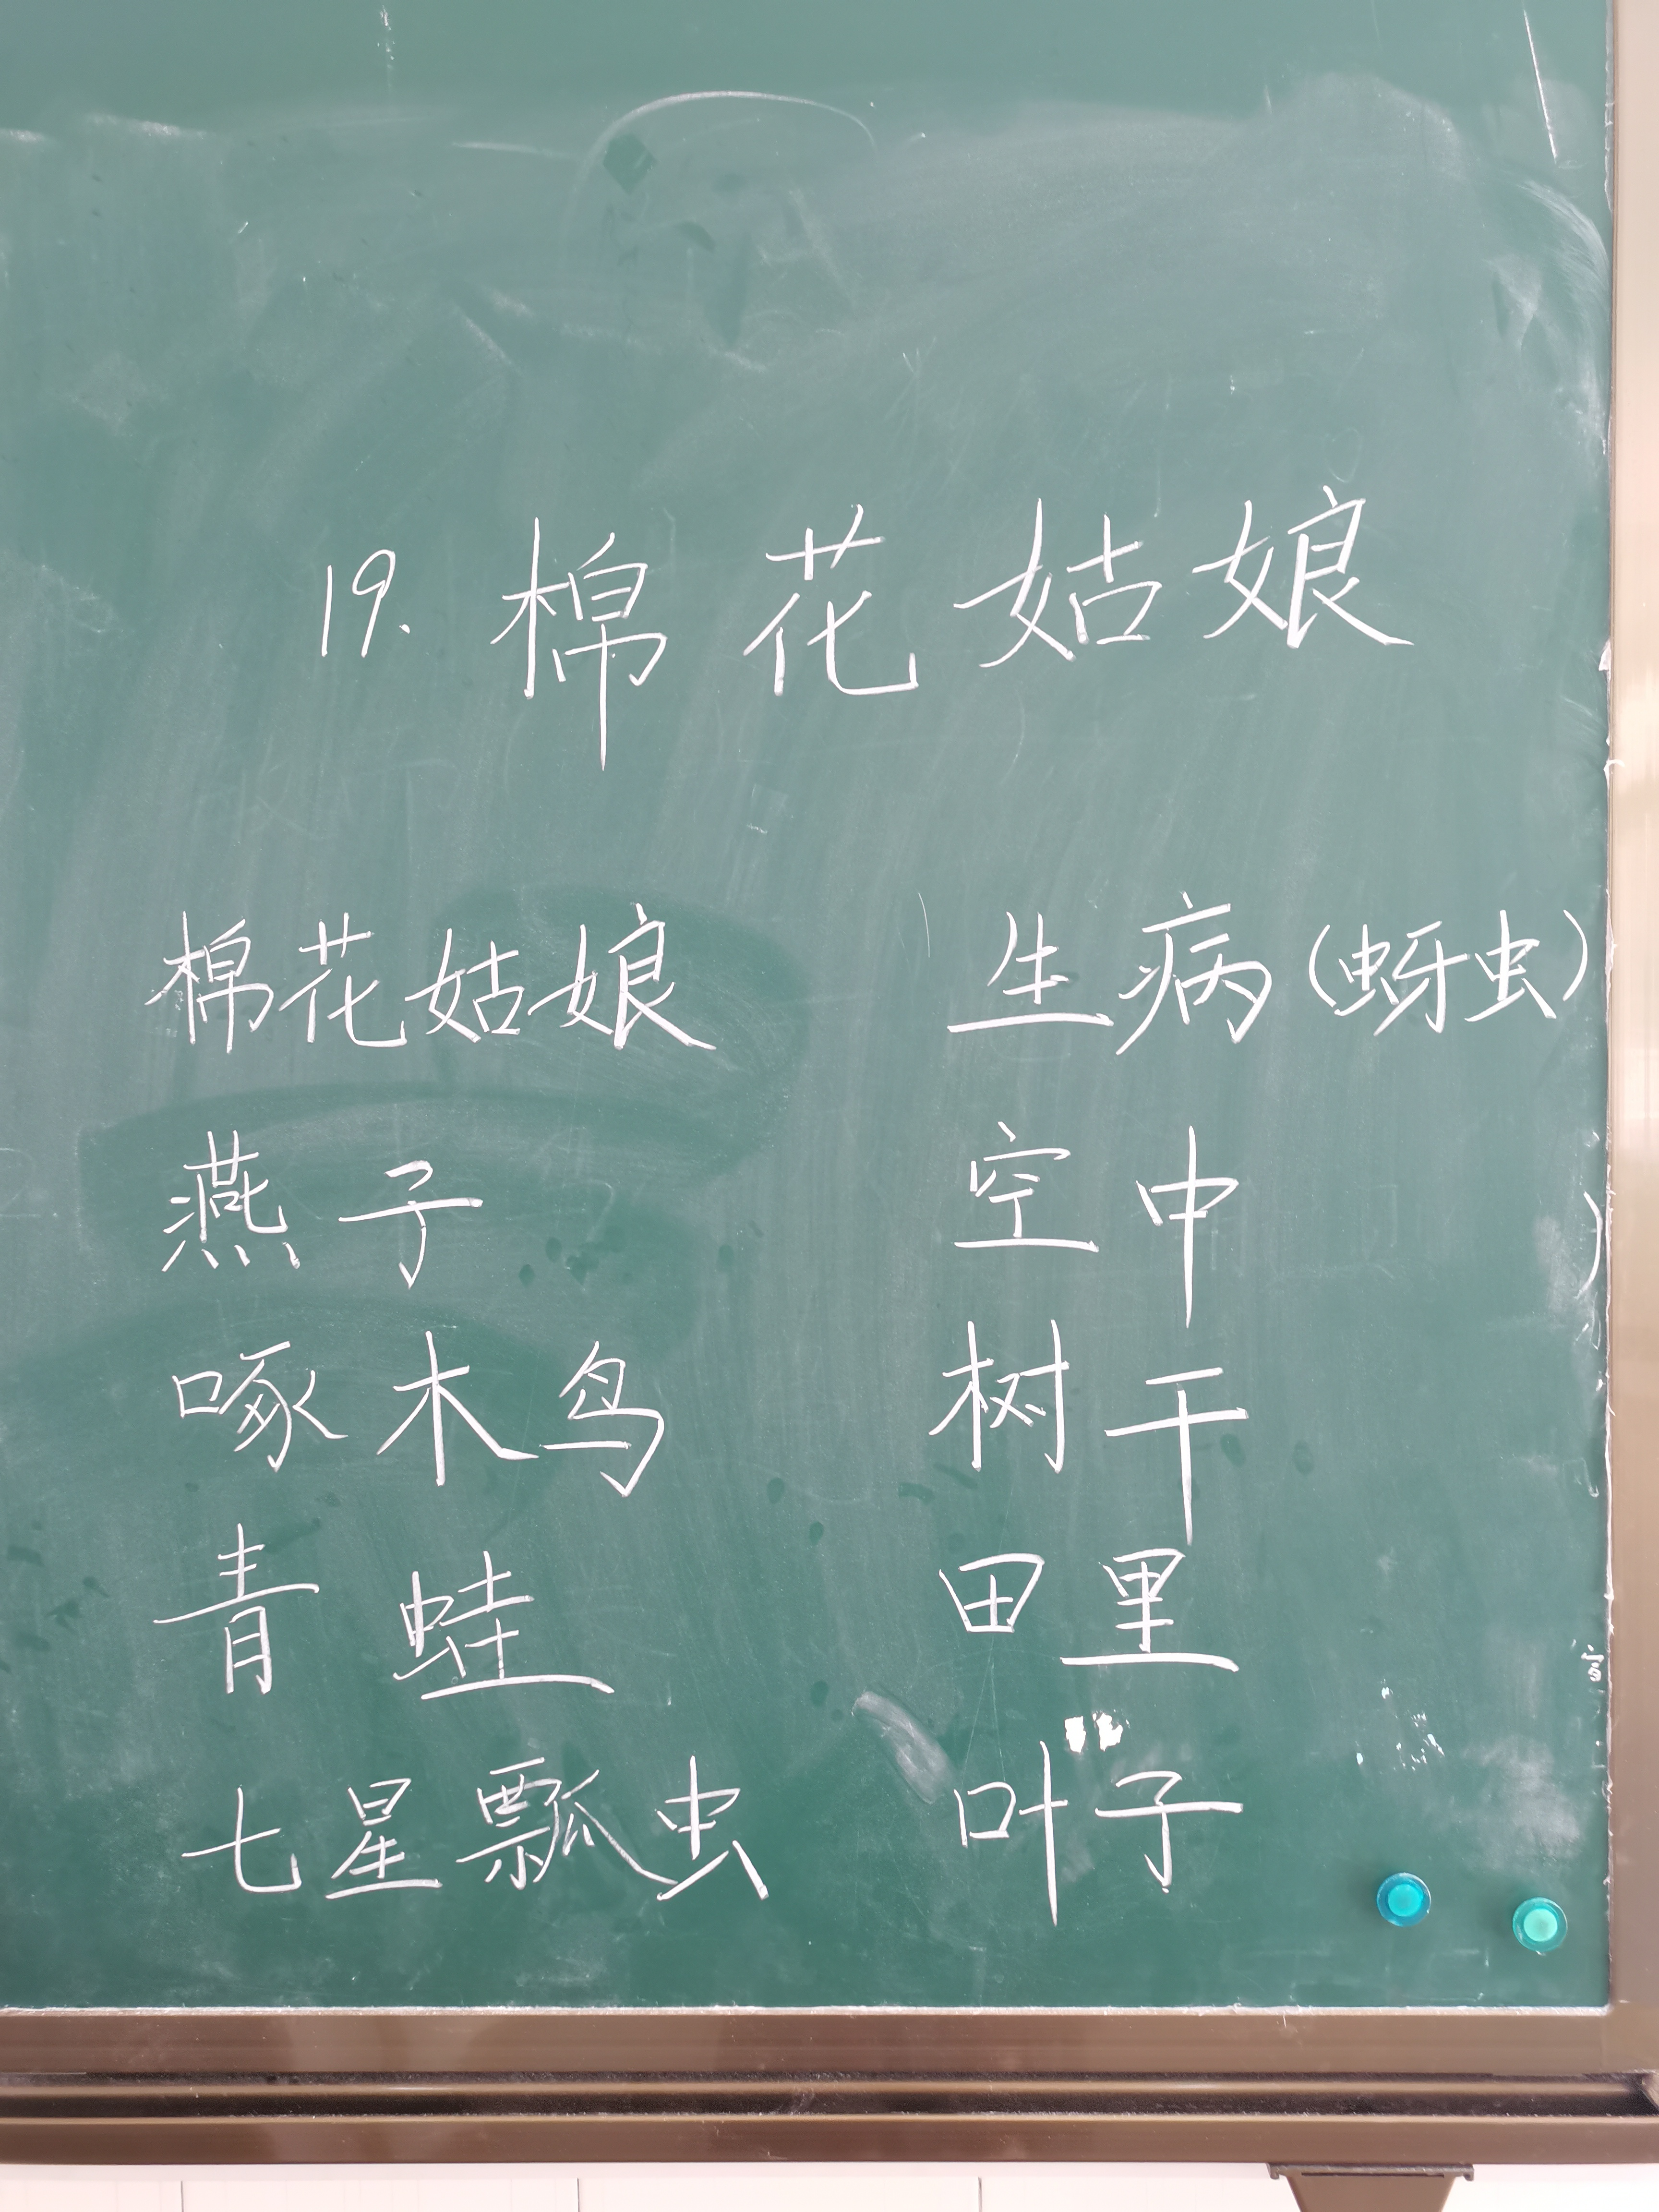 19. 棉花姑娘
棉花姑娘 生病(蚜虫)
燕子 空中
啄木鸟 树干
青蛙 田里
七星瓢虫 叶子